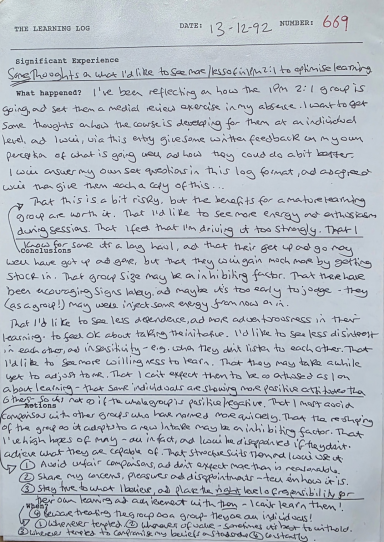 THE LEARNING LOG DATE: 13-12-92 NUMBER: 669
Significant Experience
Some thoughts on what I'd like to see more/less of in IPM 2:1 to optimise learning
What happened? I've been reflecting on how the IPM 2:1 group is
going, and set them a medial review exercise in my absence. I want to get
some thoughts on how the course is developing for them at an individual
level, and I will, via this entry give some written feedback on my own
perception of what is going well and how they could do a bit better.
I will answer my own set questions in this log format, and as agreed
will then give them each a copy of this...
That this is a bit risky, but the benefits for a mature learning
group are worth it. That I'd like to see more energy and enthusiasm
during sessions. That I feel that I'm driving it too strongly. That I
know for some it's a long haul, and that their get up and go may
Conclusions
well have got up and gone, but that they will gain much more by getting
stuck in. That group size may be an inhibiting factor. That there have
been encouraging signs today, and maybe it's too early to judge - they
(as a group!) may well inject some energy from now on in.
That I'd like to see less dependence, and more adventurousness in their
learning - to feel OK about taking the initiative. I'd like to see less disinterest
in each other, and insensitivity - e.g. when they don't listen to each other. That
I'd like to see more willingness to learn. That they may take a while
yet to adjust to me. That I can't expect them to be as enthused as I am
about learning - that some individuals are showing more positive attitudes than
others - so it's not as if the whole group is positive/negative. That I must avoid
Actions
comparisons with other groups who have normed more quickly. That the reshaping
of the group as it adapts to a new intake may be an inhibiting factor. That
I've high hopes of many - all in fact, and I will be disappointed if they don't
achieve what they are capable of. That structure suits them and I will use it
① Avoid unfair comparisons, and don't expect more than is reasonable.
② Share my concerns, pleasures and disappointments - tell em how it is.
③ Stay true to what I believe, and place the right level of responsibility for
their own learning and achievement with them - I can't learn them!
When?
④ Beware treating the group as a group - they are all individuals!
① Whenever tempted ② Whenever of value - sometimes it's best to withold.
③ Whenever tempted to compromise my beliefs and standards ④ Constantly